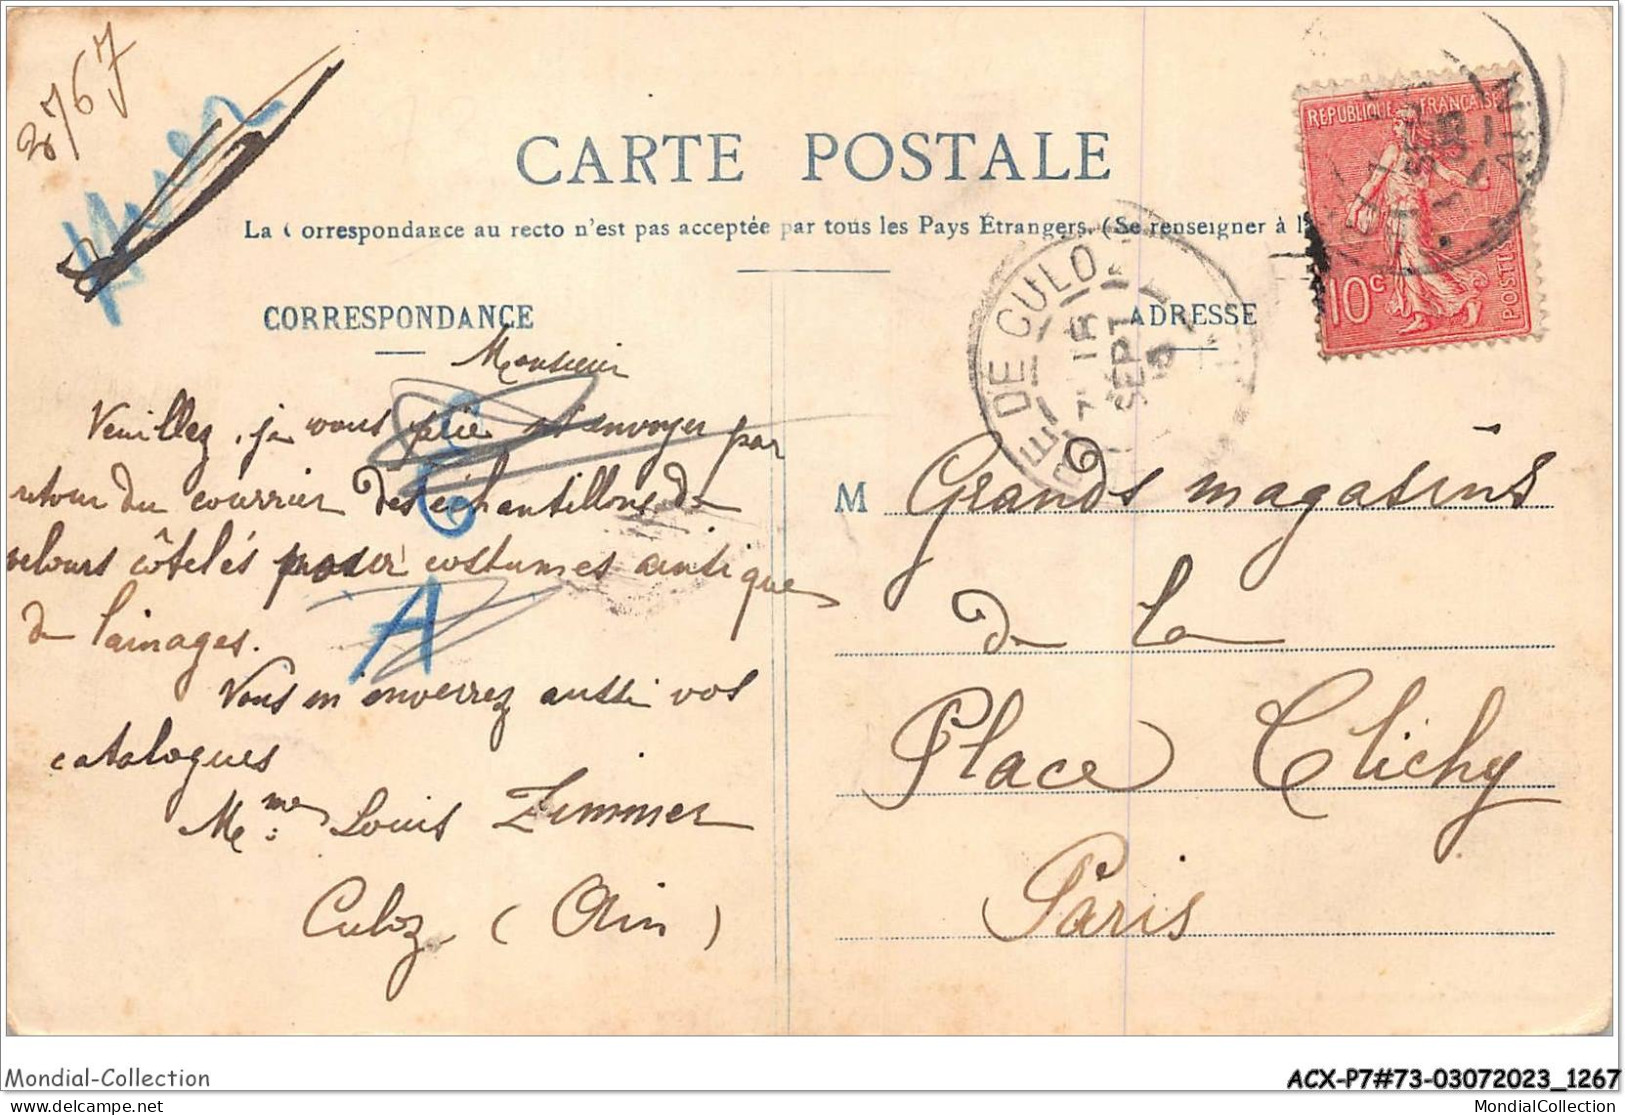 2767
CARTE POSTALE
La Correspondance au recto n'est pas acceptée par tous les Pays Étrangers. (Se renseigner à l
CORRESPONDANCE
ADRESSE
REPUBLIQUE FRANÇAISE
10c POSTES
DE CULO
7 15
SEPT
AIN
Monsieur
Veuillez, je vous prie et envoyer par
retour du courrier des échantillons de
velours côtelés pour costumes ainsi que
de lainages.
Vous m'enverrez aussi vos
catalogues
Mme Louis Zimmer
Culoz (Ain)
A
M Grands magasins
de la
Place Clichy
Paris
Mondial-Collection
ACX-P7#73-03072023_1267
delcampe.net
MondialCollection